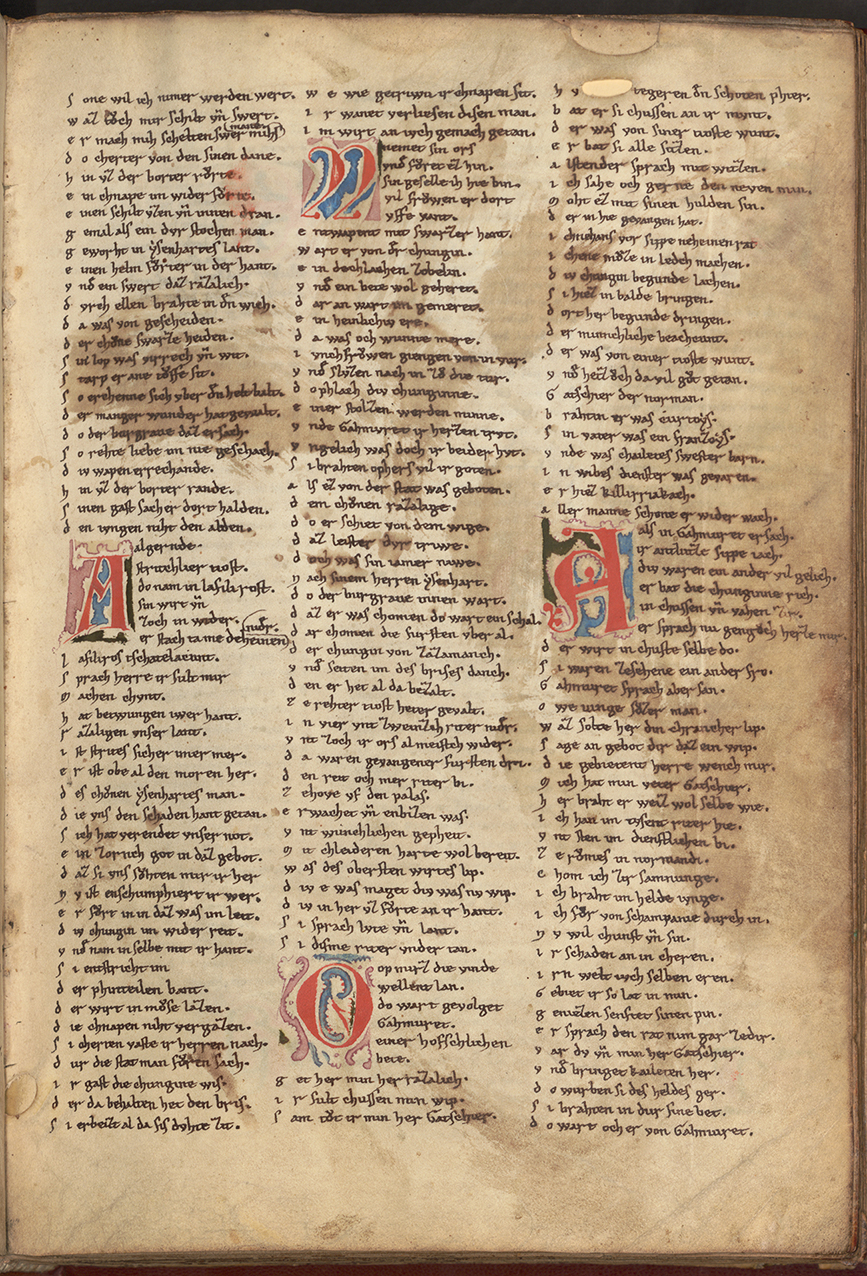 s one wil ich nimer werden wert.
w az töch mir schilt vñ swert.
e r mach mih schelten swer mihs
manet
d o cherter von den sinen dane.
h in vz der porter rörte.
e in chnape im wider förte.
e inen schilt vzen vñ innen dran.
g emal als ein dvr stochen man.
g eworht in ysenhartes lant.
e inen helm förter in der hant.
v nd ein swert daz razalich.
d vrch ellen brahte in den wich.
d a was von gescheiden.
d er chöne swarze heiden.
s in lop was virrech vñ wit.
s tarp er ane töffe sit.
s o erchenne sich vber den helt balt.
d er manger wunder hat gewalt.
d o der burgrave daz ersach.
s o rehte liebe im nie geschach.
d iv wapen errechande.
h in vz der porter rande.
s inen gast sach er dort halden.
d en ivngen niht den alden.
A al gernde
stritchlier tiost.
do nam in lasilirost.
sin wirt vñ
zoch in wider.
er stach ta nie deheinen
nidr.
l asiliros tschatelacunt.
s prach herre ir sult mir
m achen chunt.
h at betwungen iwer hant.
r azaligen vnser lant.
i st strites sicher imer mer.
e r ist obe al den moren her.
d es chönen ysenhartes man.
d ie vns den schaden hant getan.
s ich hat verendet vnser not.
e in zornich got in daz gebot.
d az si vns söhten mit ir her
n v ist enschumphiert ir wer.
e r fört in in daz was im leit.
d iv chungin im wider reit.
v nd nam in selbe mit ir hant.
s i entstricht im
d er phinteilen bant.
d er wirt in möse lazen.
d ie chnapen niht vergazen.
s i cherten vaste ir herren nach.
d ur die stat man fören sach.
i r gast die chungine wis.
d er da behalten het den bris.
s i erbeizt al da sis dvhte zit.
w e wie getriwu ir chnapen sit.
i r wanet verliesen disen man.
i m wirt an ivch gemach getan.
N nemet sin ors
vnd föret ez hin.
sin geselle ih hie bin.
vil fröwen er dort
vffe vant.
e ntwapent mit swarzer hant.
w art er von der chungin.
e in dechlachen zobelin.
v nd ein bete wol geheret.
d ar an wart im gemeret.
e in heinlichiv ere.
d a was och niunne mere.
i vnchfröwen giengen von in vur.
v nd slvzen nach in zö die tur.
d o phlach div chunginne.
e iner stolzen werden minne.
v nde Gahmuret ir herzen trvt.
v ngelich was doch ir beider hvt.
s i brahten ophers vil ir goten.
a ls ez von der stat was geboten.
d em chönen razalige.
d o er schiet von dem wige.
d az leister dvr triwe.
d och was sin iamer niwe.
n ach sinem herren ysenhart.
d o der burgrave innen wart.
d az er was chomen do wart ein schal.
d ar chomen die fursten vber al.
d er chungin von zazamanch.
v nd seiten im des brises danch.
d en er het al da bezalt.
z e rehter tiost heter gevalt.
i n vier vnt zweinzich riter nidr.
v nt zoch ir ors al meistich wider.
d a waren gevangener fursten dri.
d en reit och mer riter bi.
z e hove vf den palas.
e rwachet vñ enbizen was.
v nt wunchlichen gepheit.
m it chleideren harte wol bereit.
w as des obersten wirtes lip.
d iv e was maget div was nv wip.
d iv in her vz förte an ir hant.
s i sprach lyte vñ lant.
s i disme riter vnder tan.
O op mirz die vinde
wellent lan.
do wart gevolget
Gahmuret.
einer hofschlichen
bete.
g et her min her razalich.
i r sult chussen min wip.
s am töt ir min her Gatschier.
h v tegeren den schoten phier.
b at er si chussen an ir munt.
d er was von siner tioste wunt.
e r bat si alle sizen.
a lstender sprach mit wizen.
i ch sahe och gerne den neven min.
m oht ez mit sinen hulden sin.
d er in hie gevangen hat.
i chnehans vor sippe neheinen rat
i chene möze in ledech machen.
d iv chungin begunde lachen.
s i hiez in balde bringen.
d ort her begunde dringen.
d er minnchliche beacheunt.
d er was von einer tioste wunt.
v nd hetz och da vil göt getan.
G atschier der norman.
b rahtin er was curtoys.
s in vater was ein franzoys.
v nde was chailetes swester barn.
i n wibes dienster was gevaren.
e r hiez killirriakach.
a ller manne schone er wider wach.
A als in Gahmuret ersach.
ir antlutze sippe iach.
diu waren ein ander vil gelich.
er bat die chunginne rich.
in chussen vñ vahen zir.
er sprach nu gengöch her ze mir.
d er wirt in chuste selbe do.
s i waren zesehene ein ander fro.
G ahmuret sprach aber san.
o we iunge sözer man.
w az solte her din chrancher lip.
s age an gebot dir daz ein wip.
d ie gebietent herre wench mir.
m ich hat min veter Gatschier.
h er braht er weiz wol selbe wie.
i ch han im tvsent riter hie.
v nt sten im dienstlichen bi.
z e römes in normandi.
c hom ich zer samnunge.
i ch braht im helde ivnge.
i ch för von schampanie durch in.
n v wil chunst vñ sin.
i r schaden an in cheren.
i rn welt ivch selben eren.
G ebiet ir so lat in min.
g eniezen senftet sinen pin.
e r sprach den rat nim gar ze dir.
v ar dv vñ min her Gatschier.
v nd bringet kaileten her.
d o wurben si des heldes ger.
s i brahten in dur sine bet.
d o wart och er von Gahmuret.